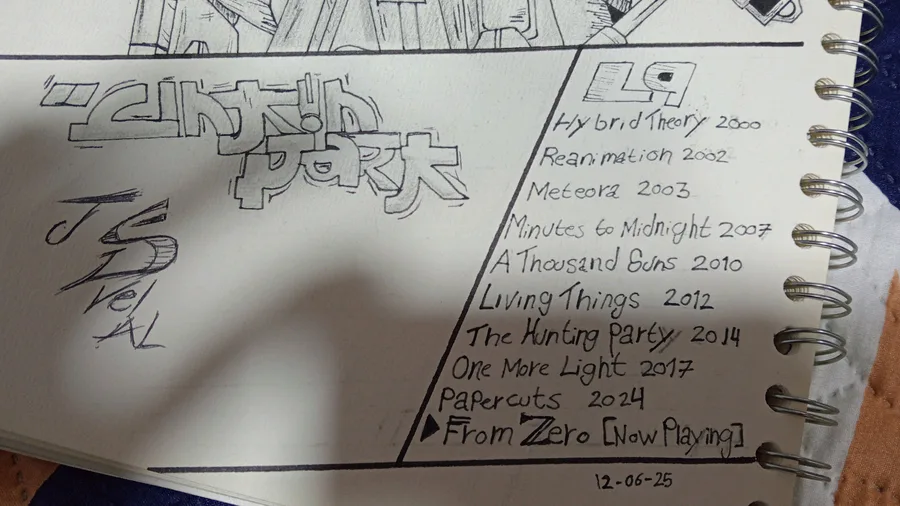 Linkin
Park
J S
vel
AL
LP
Hybrid Theory 2000
Reanimation 2002
Meteora 2003
Minutes to Midnight 2007
A Thousand Suns 2010
Living Things 2012
The Hunting Party 2014
One More Light 2017
Papercuts 2024
From Zero [Now Playing]
12-06-25